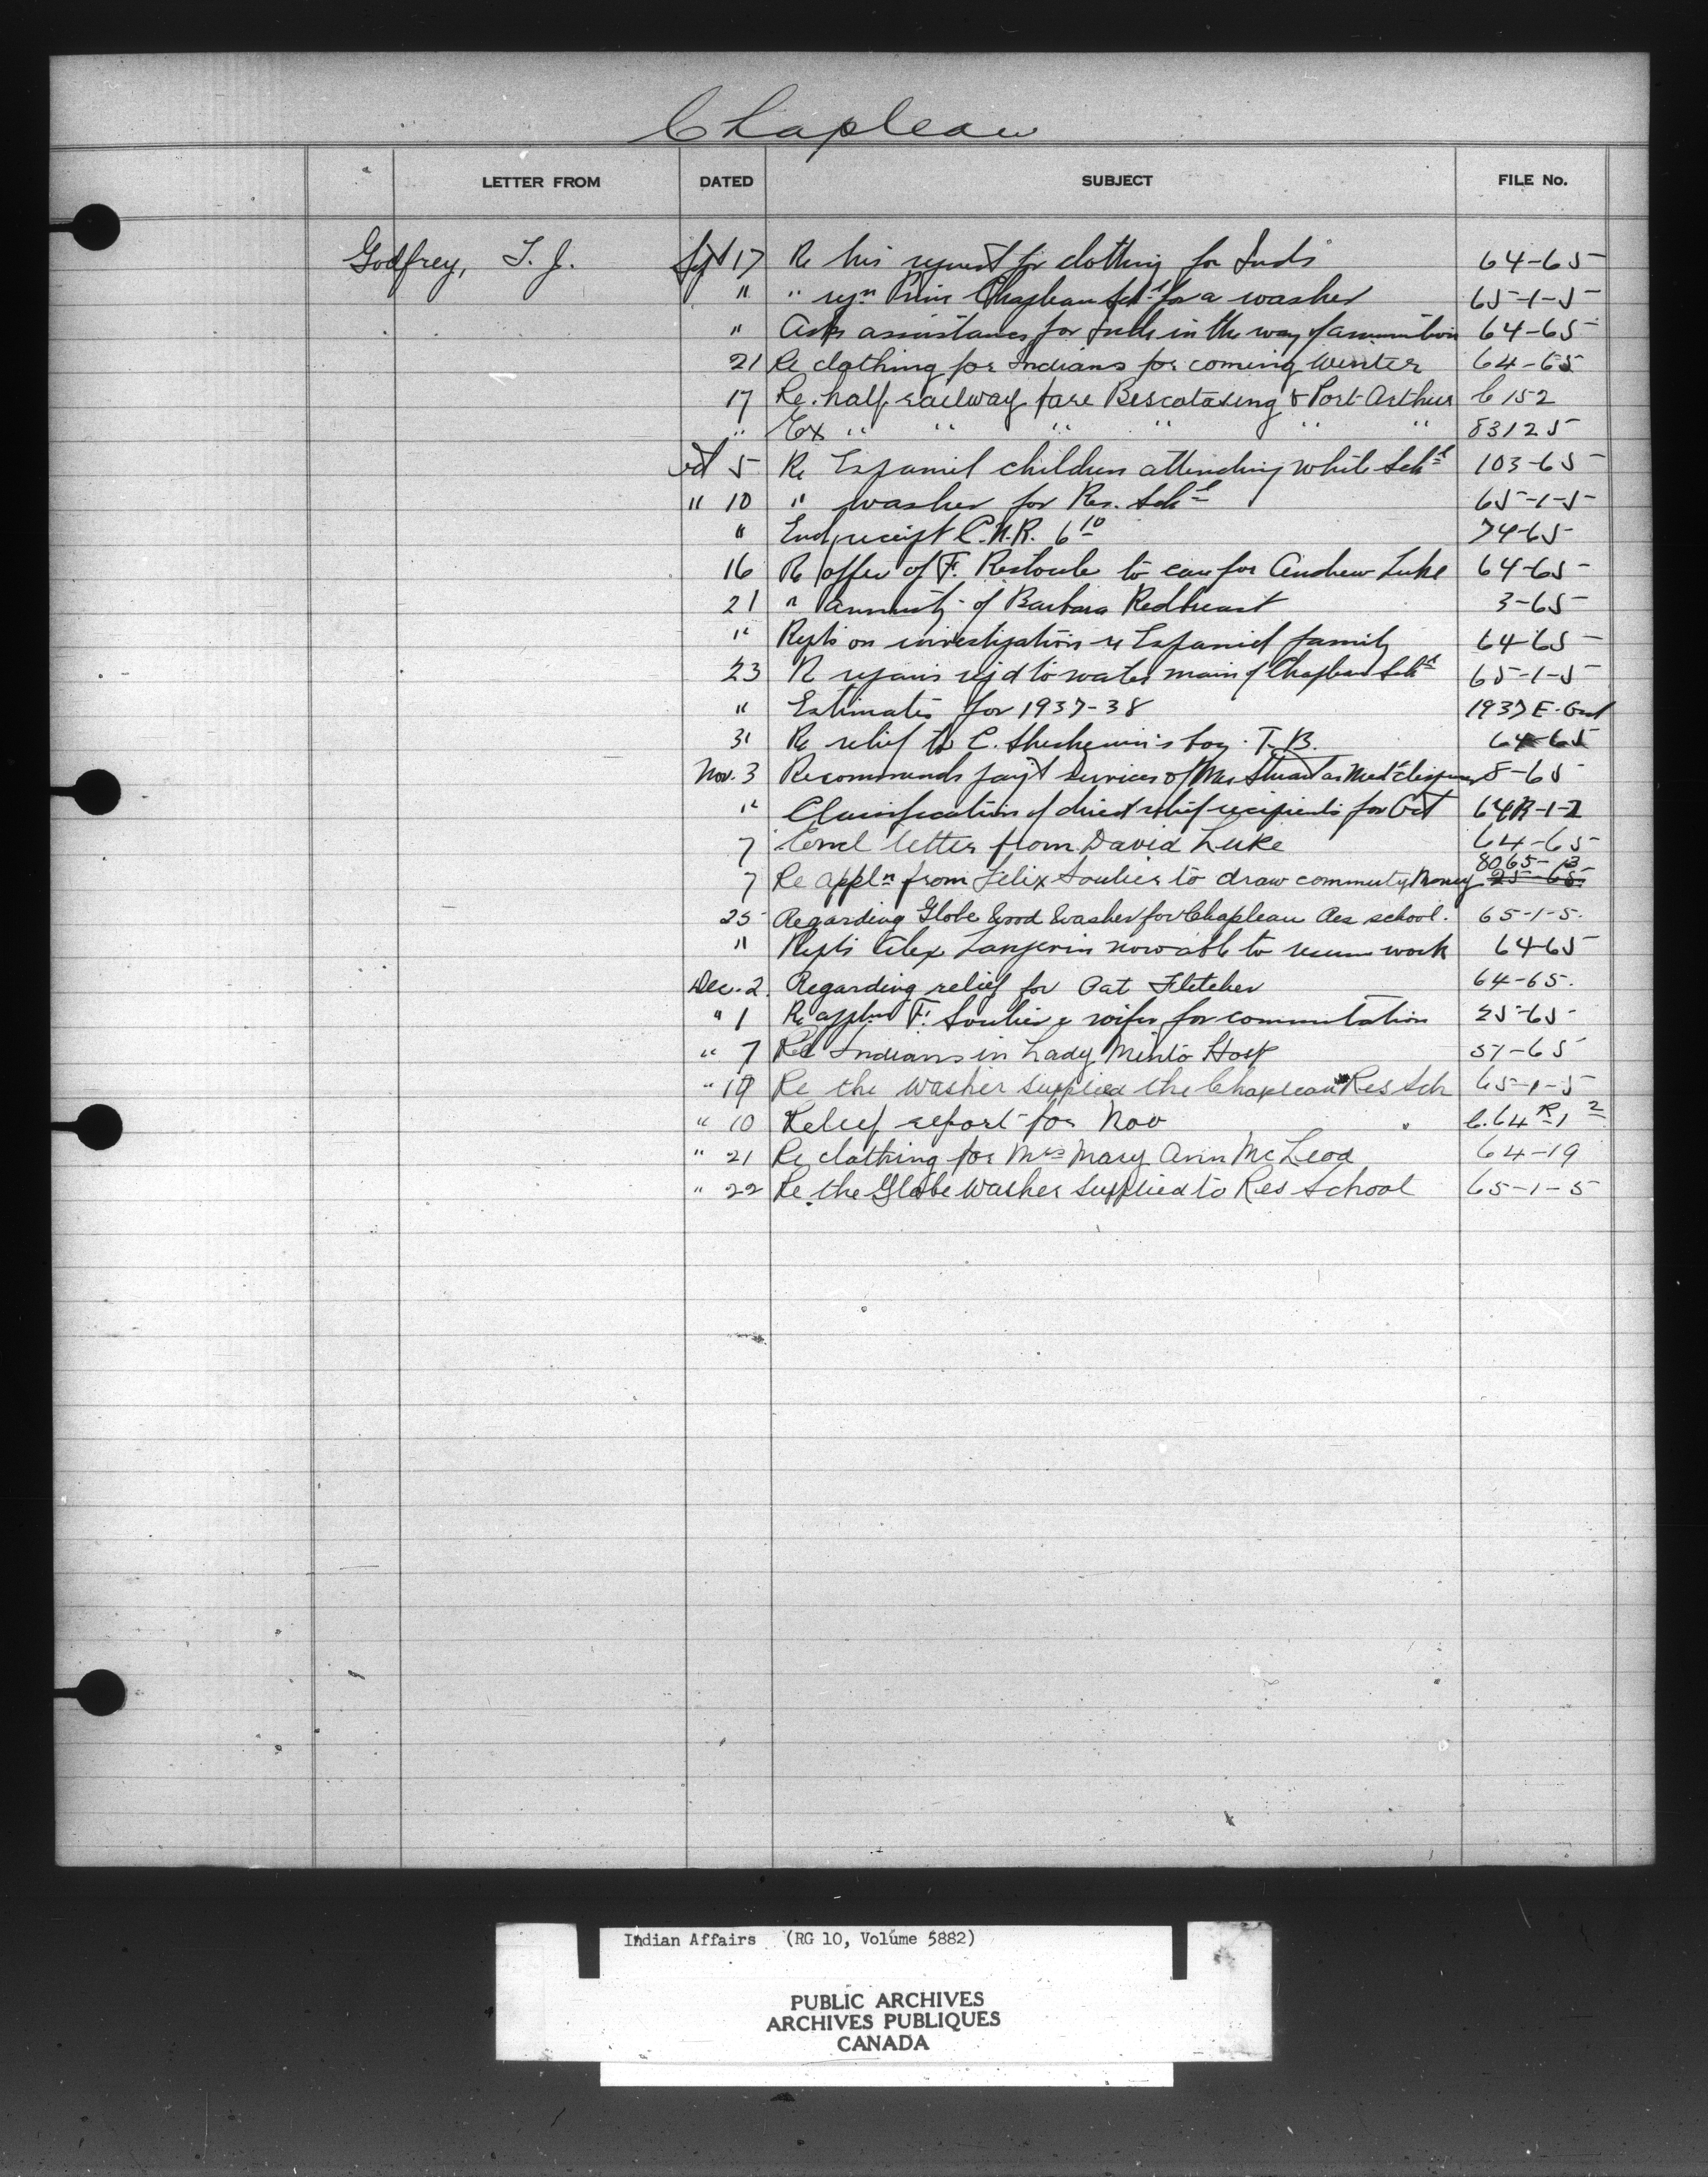 Chapleau
LETTER FROM DATED SUBJECT FILE No.
Godfrey, T. J. Sept 17 Re his request for clothing for Inds 64-65
" " reqn Prin Chapleau Schl for a washer 65-1-5
" Asks assistance for Inds in the way of ammunition 64-65
21 Re clothing for Indians for coming Winter 64-65
17 Re. half railway fare Biscotasing & Port Arthur C 152
" Ex " " " " " " 83125
Oct 5 Re Espaniel children attending white Schl 103-65
" 10 " washer for Res. Schl 65-1-5
" Encl receipt C.N.R. 6 10 74-65
16 Re offer of F. Restoule to care for Andrew Luke 64-65
21 " annuity of Barbara Redbreast 3-65
" Repts on investigation re Espaniel family 64-65
23 Re repairs reqd to water main of Chapleau Schl 65-1-5
" Estimates for 1937-38 1937 E.
31 Re relief to C. boy. T.B. 64-65
Nov. 3 Recommends payt services of Mrs Stuart as Medl 8-65
" Classification of direct relief recipients for Oct 64R-1-2
7 Encl letter from David Luke 64-65
8065-13
7 Re appln from Felix Soulier to draw commuty Money 25-65
25 Regarding Globe Wood Washer for Chapleau Res school. 65-1-5.
" Repts Alex Langevin now able to resume work 64-65
Dec. 2. Regarding relief for Pat Fletcher 64-65.
" 1 Re appln F. Soulier & wife for commutation 25-65
" 7 Re Indians in Lady Minto Hosp 57-65
" 19 Re the Washer supplied the Chapleau Res Sch 65-1-5
" 10 Relief report for Nov C.64 R 1 2
" 21 Re clothing for Mrs Mary Ann McLeod 64-19
" 22 Re. the Globe Washer supplied to Res School 65-1-5
Indian Affairs (RG 10, Volume 5882)
PUBLIC ARCHIVES
ARCHIVES PUBLIQUES
CANADA